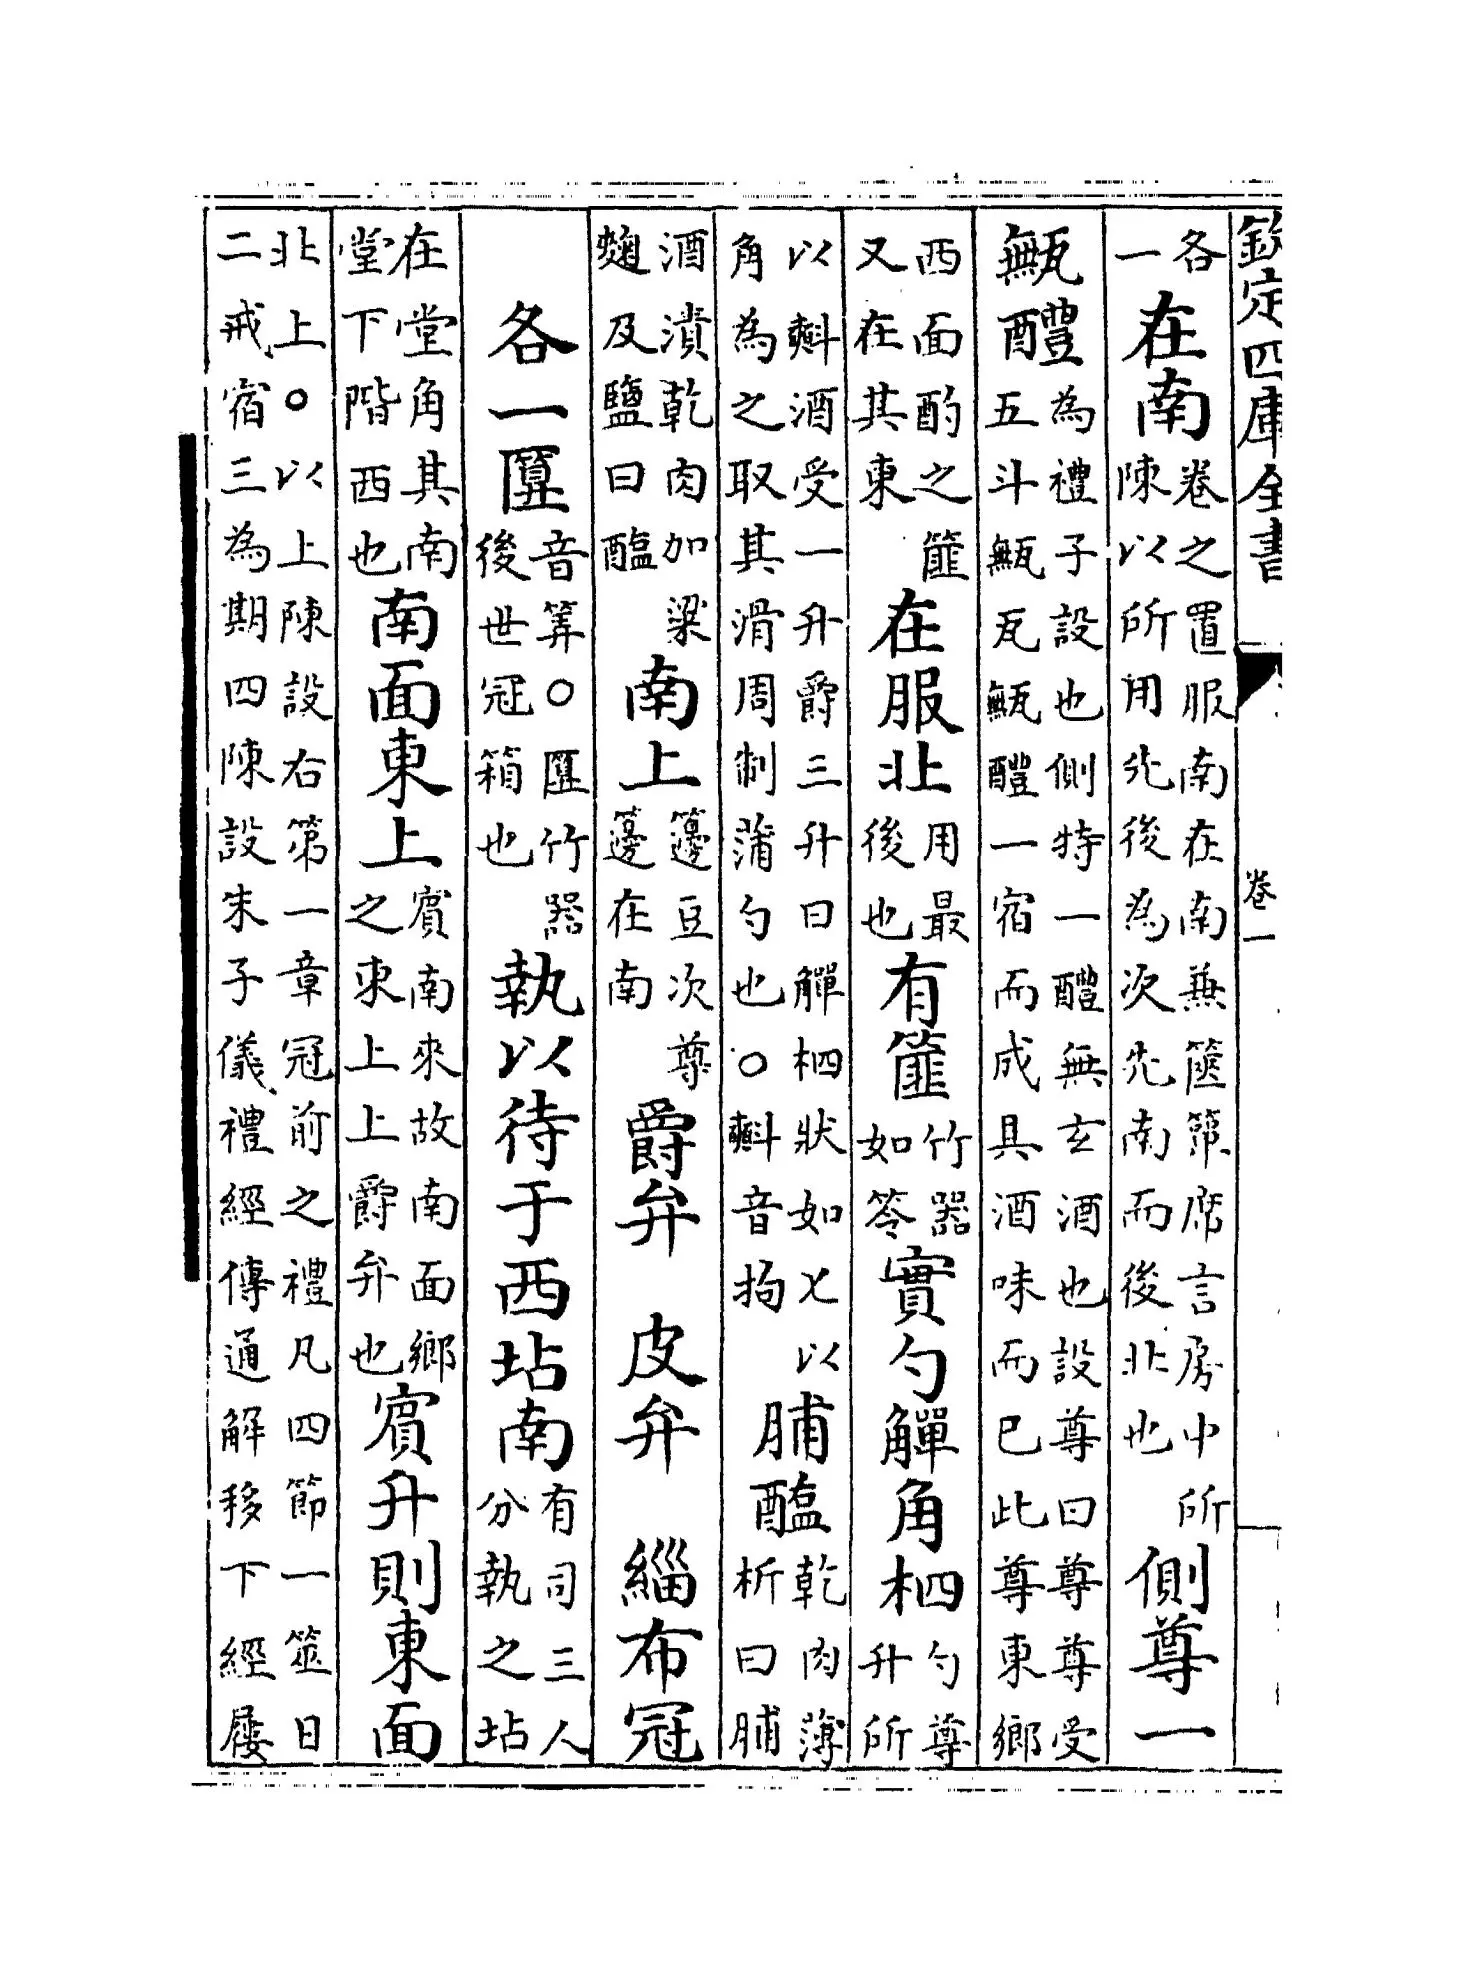 欽定四庫全書 卷一
各一在南卷之置服南在南兼篋簟席言房中所陳以所用先後為次先南而後北也側尊一
甒醴為禮子設也側特一醴無玄酒也設尊曰尊尊受五斗甒瓦甒醴一宿而成具酒味而已此尊東鄉
西面酌之篚又在其東在服北用最後也有篚竹器如笭實勺觶角柶勺尊升所
以㪺酒受一升爵三升曰觶柶狀如匕以角為之取其滑周制蒲勺也○㪺音拘脯醢乾肉薄析曰脯
酒漬乾肉加粱麹及鹽曰醢南上籩豆次尊籩在南爵弁 皮弁 緇布冠
各一匴音筭○匴竹器後世冠箱也執以待于西坫南有司三人分執之坫
在堂角其南堂下階西也南面東上賓南來故南面鄉之東上上爵弁也賓升則東面
北上○以上陳設右第一章冠前之禮凡四節一筮日二戒宿三為期四陳設朱子儀禮經傳通解移下經屨